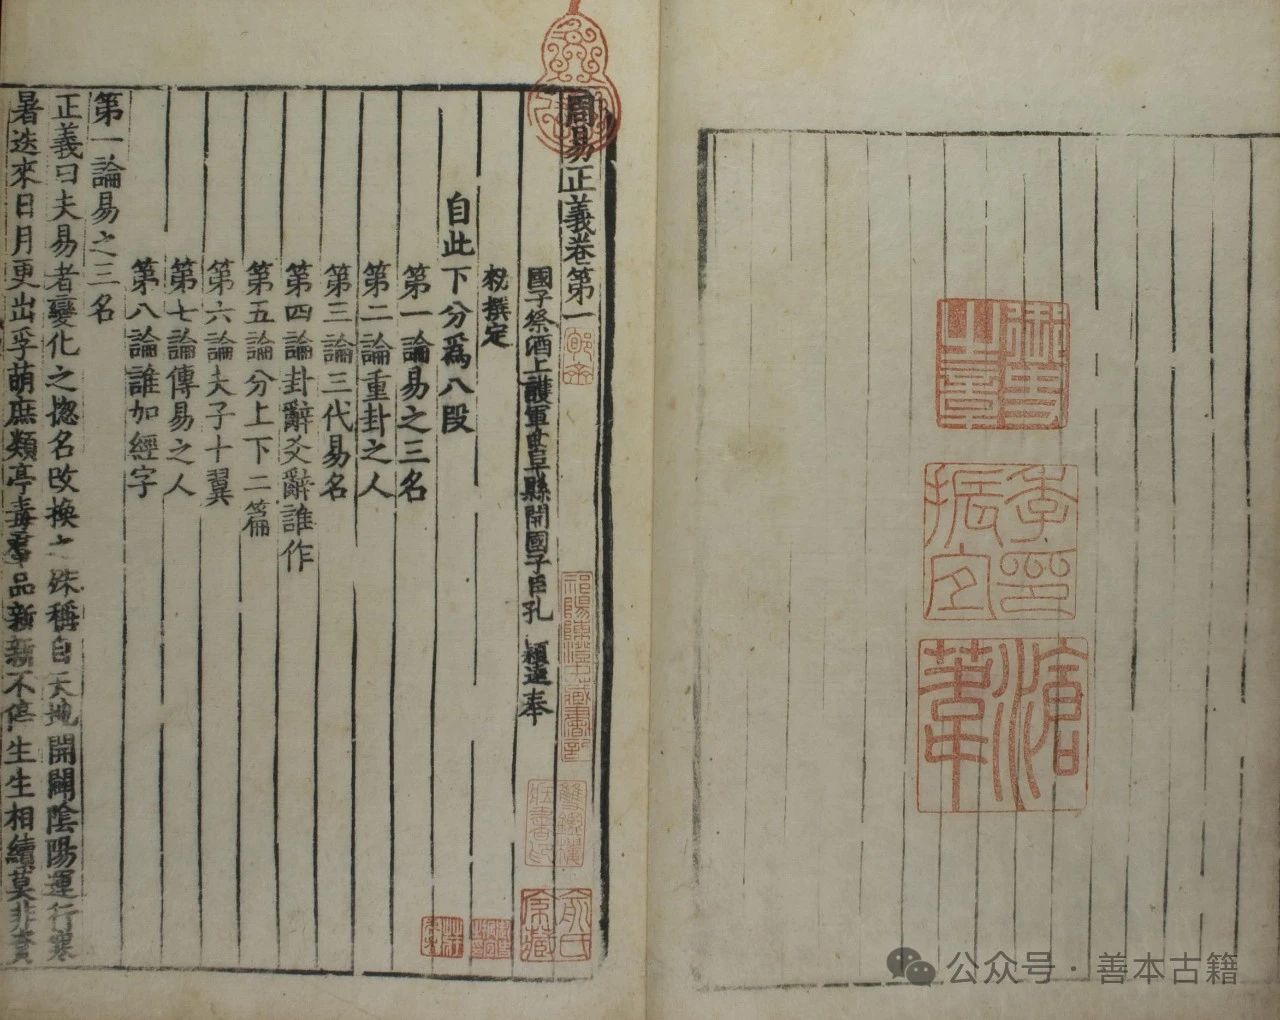 周易正義卷第一
國子祭酒上護軍曲阜縣開國子臣孔 穎達奉
敕撰定
自此下分爲八段
第一論易之三名
第二論重卦之人
第三論三代易名
第四論卦辭爻辭誰作
第五論分上下二篇
第六論夫子十翼
第七論傳易之人
第八論誰加經字
第一論易之三名
正義曰夫易者變化之揔名改換之殊稱自天地開闢陰陽運行寒
暑迭來日月更出孚萌庶類亭毒羣品新新不停生生相續莫非資
祁陽陳澄中藏書記
雙鑑樓
藏書印
俞氏
家藏
季印
振宜
滄
葦
公众号·善本古籍